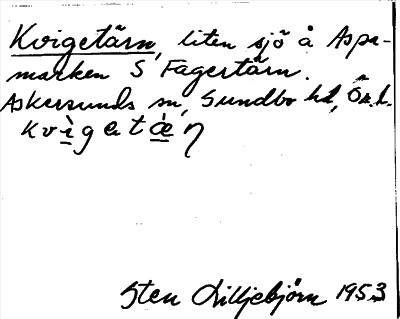 Kvigetärn, liten sjö å Aspa-
marken S Fagertärn.
Askersunds sn, Sundbo hd, Ör.l.
kvi̲getæ̲̀ɳ
Sten Lilljebjörn 1953